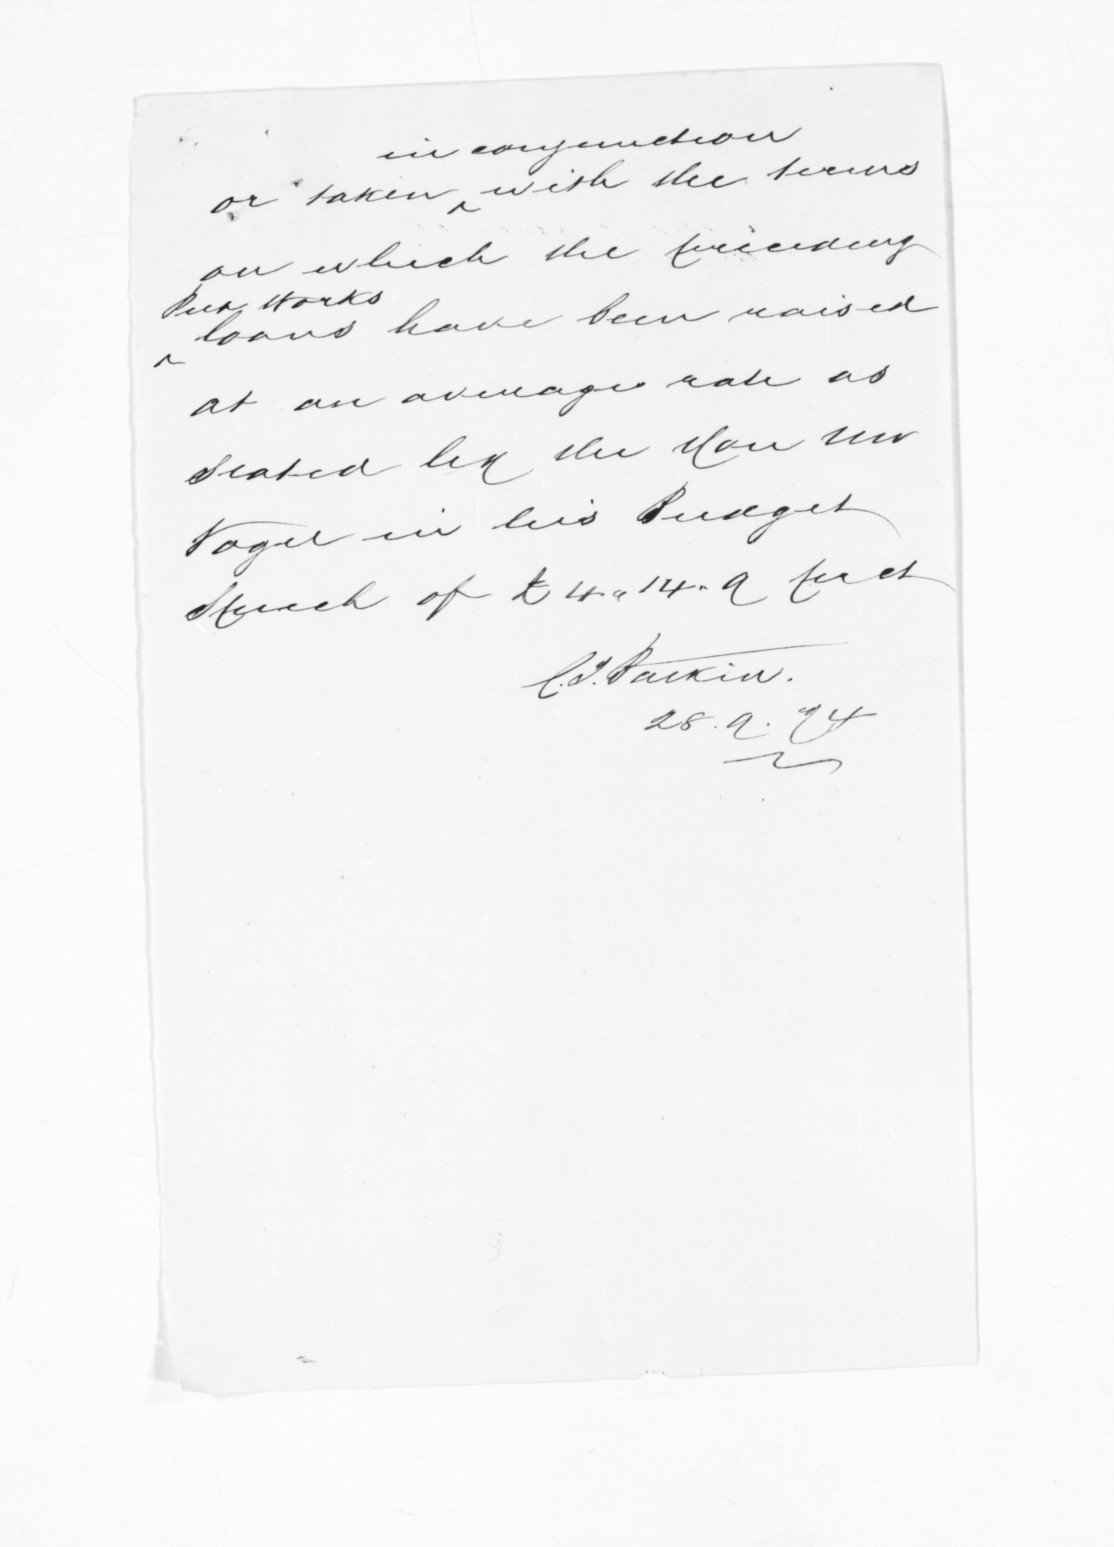 in conjunction
or taken ^ with the terms
on which the preceeding
Pub Works
^ loans have been raised
at an average rate as
stated by the Hon Mr
Vogel in his Budget
Speech of £4.14.9 per ct
28.9.74